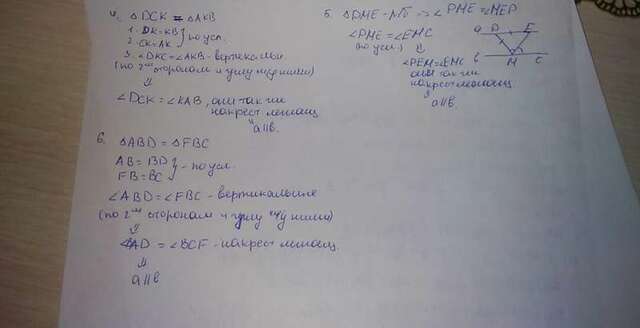 4. △DCK = △AKB
1. DK=KB } по усл.
2. CK=AK
3. ∠DKC=∠AKB - вертикальн
(по 2ум сторонам и углу м/у ними)
⇓
∠DCK = ∠KAB, они так ли
накрест лежащ
⇓
a∥в.
5. △DME - р/б ⇒ ∠DME = ∠MED
∠DME = ∠EMC
(по усл.) ⇓
∠DEM=∠EMC
они так ли
накрест лежащ
⇓
a∥в.
a D E
в M C
6. △ABD = △FBC
AB = BD } - по усл.
FB = BC
∠ABD = ∠FBC - вертикальные
(по 2ум сторонам и углу м/у ними)
⇓
AD = ∠BCF - накрест лежащ.
⇓
a∥в